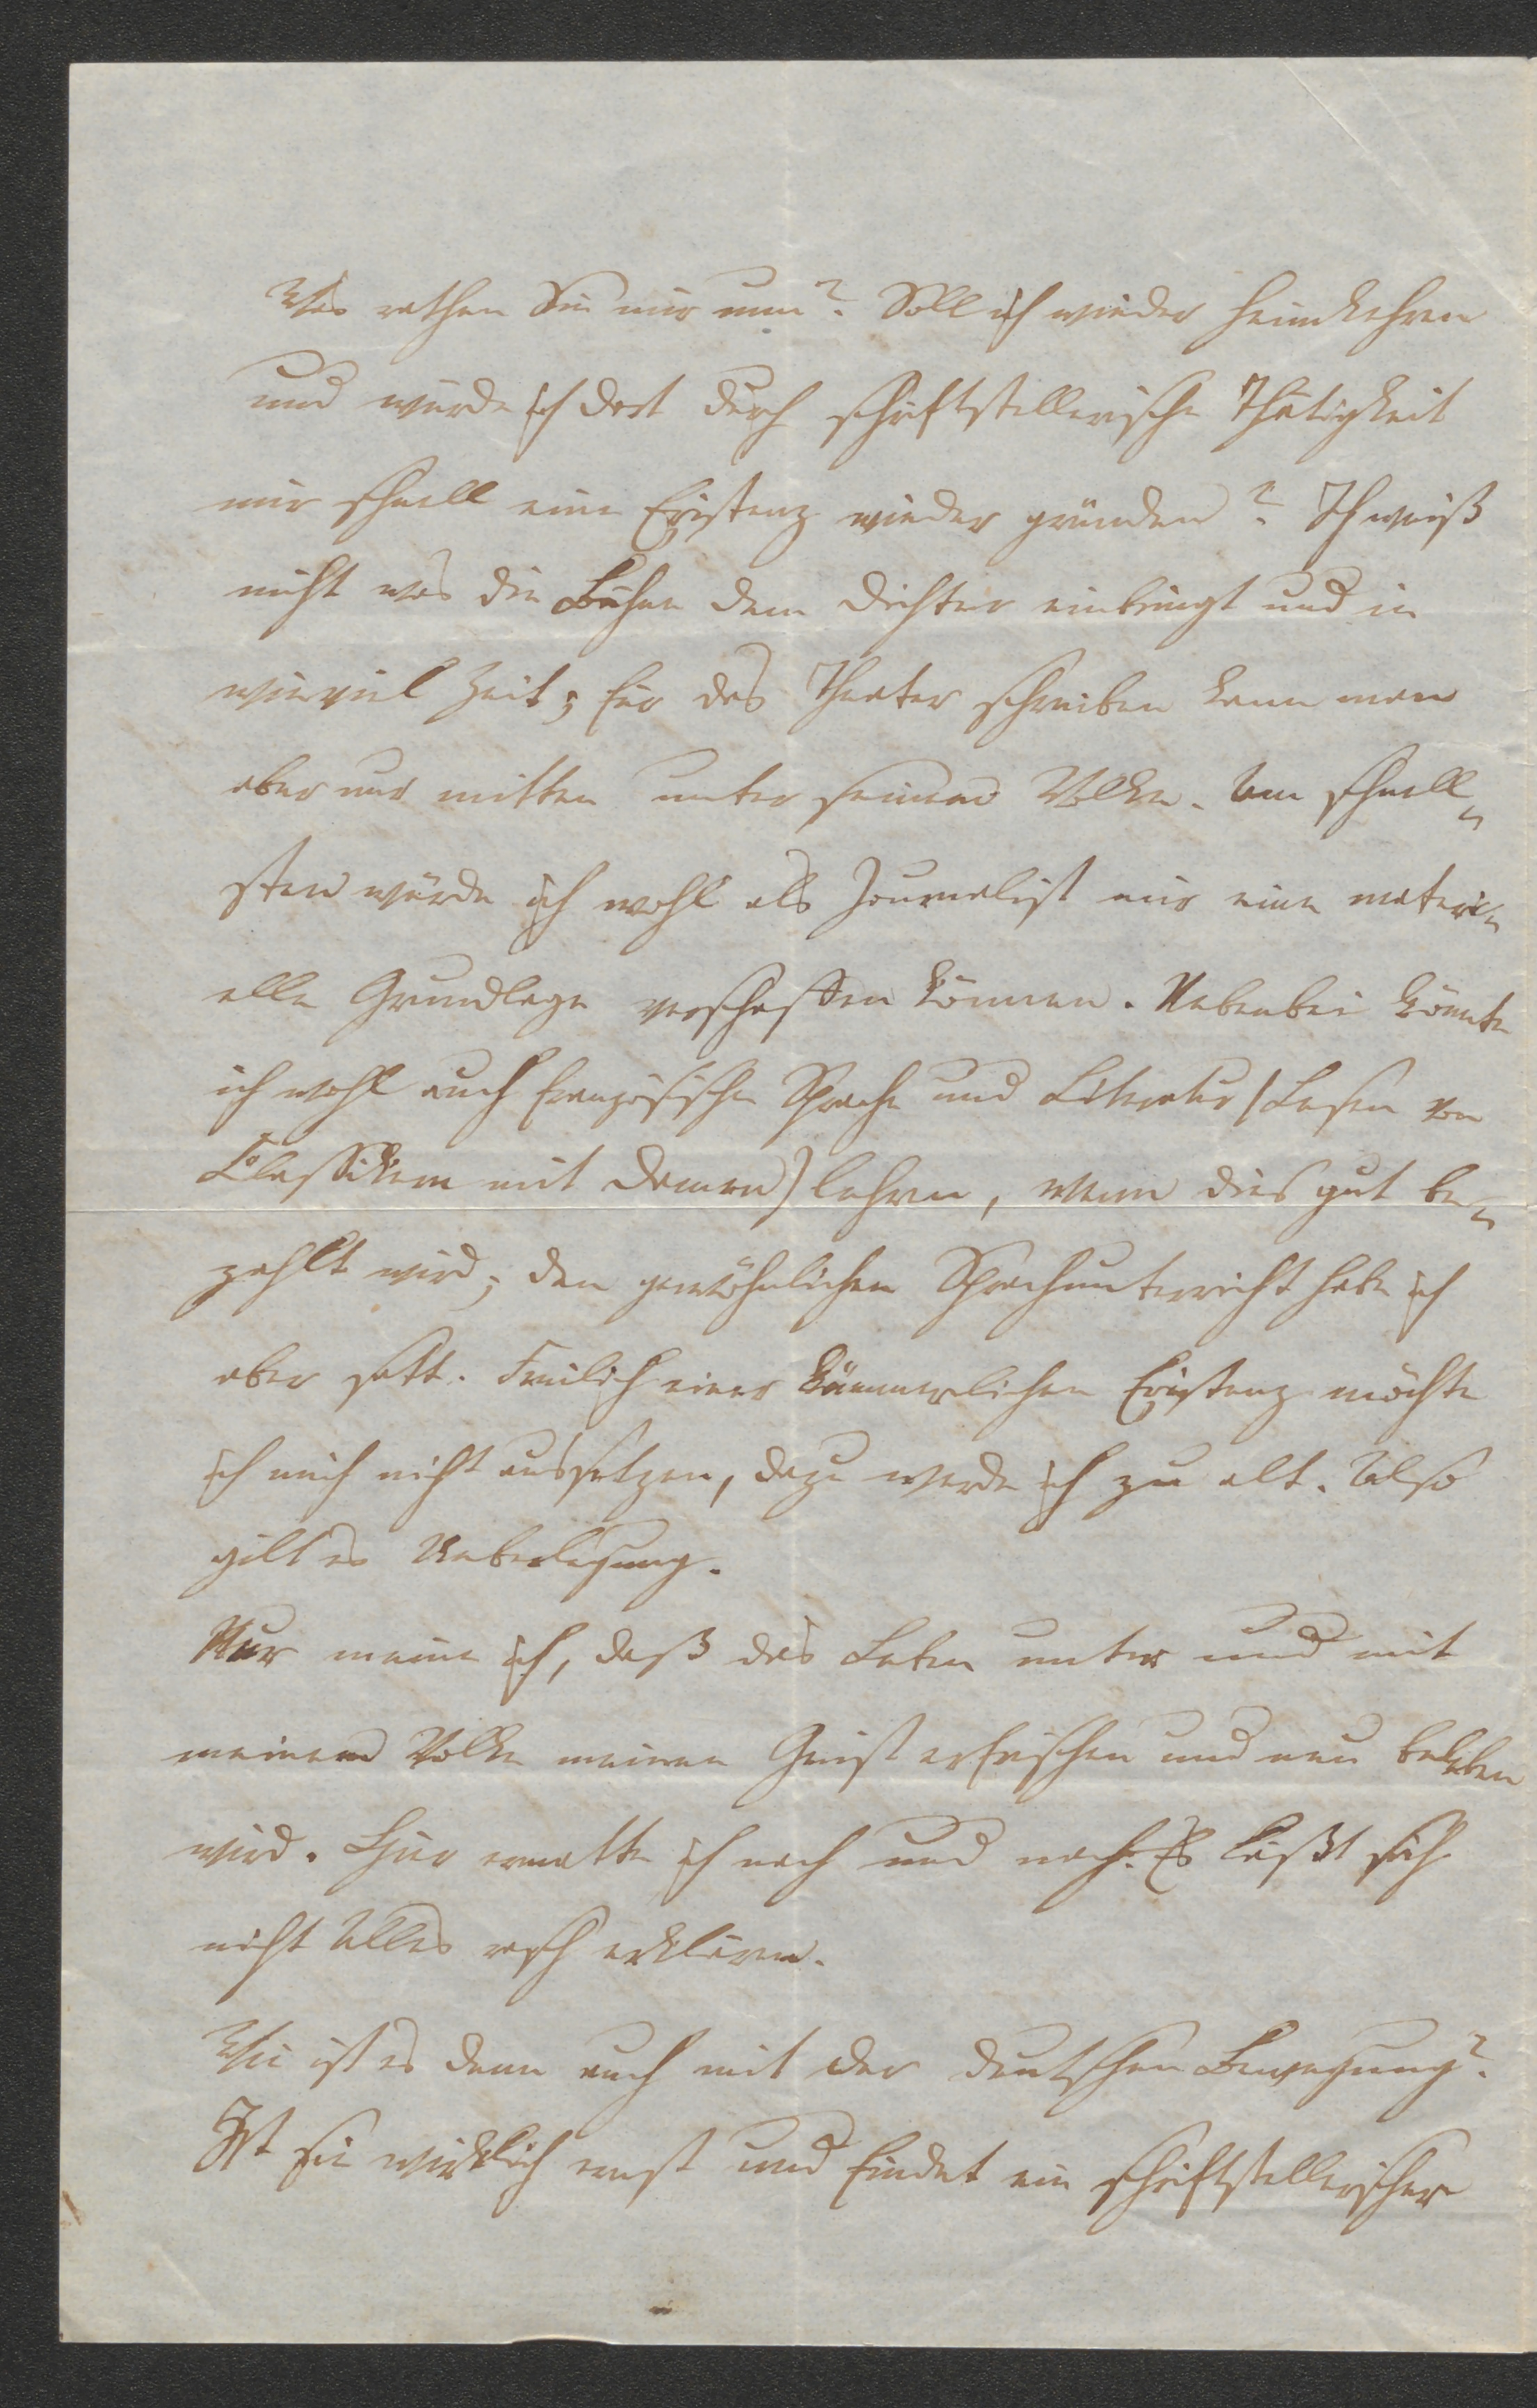 Was rathen Sie mir nun? Soll ich wieder heimkehren
und würde ich dort durch schriftstellerische Thätigkeit
mir schnell eine Existenz wieder gründen? Ich weiß
nicht was die Bühne dem Dichter einbringt und in
wieviel Zeit; für das Theater schreiben kann man
aber nur mitten unter seinem Volke. Am schnell-
sten würde ich wohl als Journalist mir eine materi-
elle Grundlage verschaffen können. Nebenbei könnte
ich wohl auch französische Sprache und Literatur (Lesen von
Classikern mit Damen) lehren, wenn dies gut be-
zahlt wird; den gewöhnlichen Sprachunterricht habe ich
aber satt. Freilich einer kümmerlichen Existenz möchte
ich mich nicht aussetzen, dazu werde ich zu alt. Also
gilt es Ueberlegung.
Nur meine ich, daß das Leben unter und mit
meinem Volke meinen Geist erfrischen und neu beleben
wird. Hier ermatte ich nach und nach. Es läßt sich
nicht Alles rasch erklären.
Wie ist es denn auch mit der deutschen Bewegung?
Ist sie wirklich ernst und findet ein schriftstellerischer